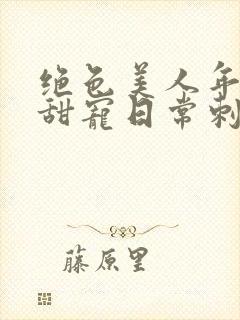 绝色美人年
甜宠日常刺
藤原里